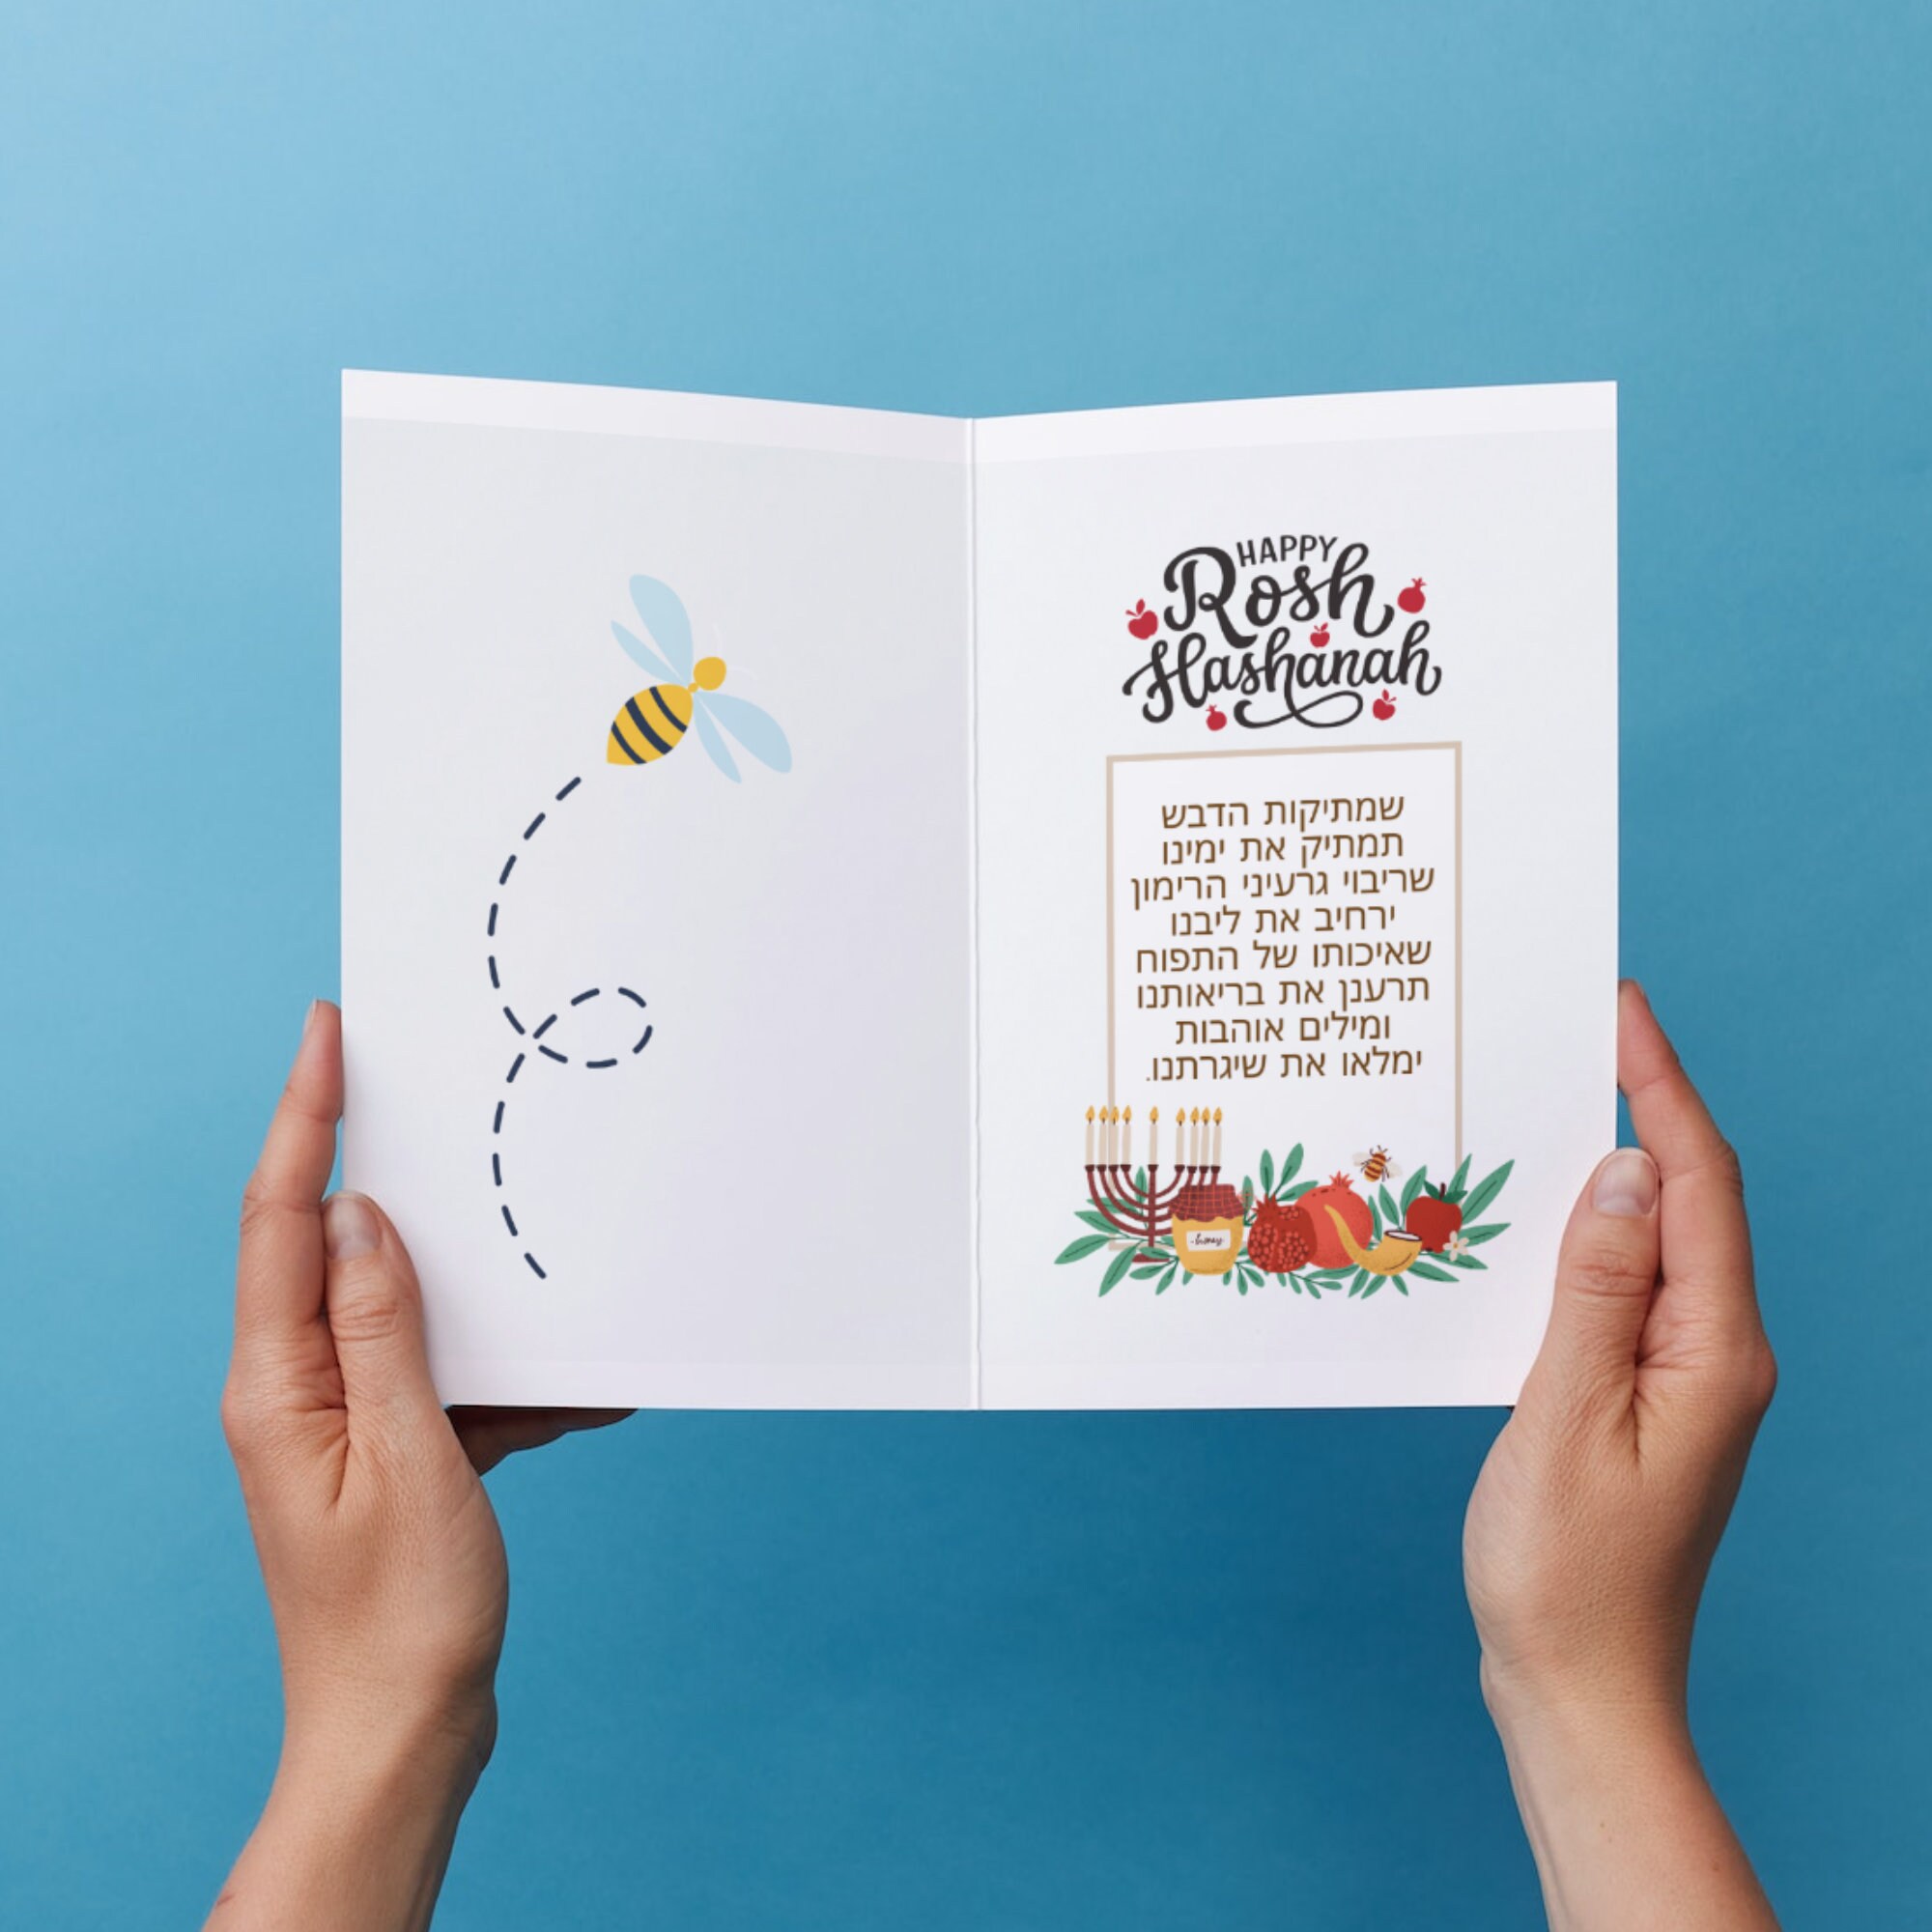 HAPPY
Rosh
Hashanah
שמתיקות הדבש
תמתיק את ימינו
שריבוי גרעיני הרימון
ירחיב את ליבנו
שאיכותו של התפוח
תרענן את בריאותנו
ומילים אוהבות
ימלאו את שיגרתנו.
honey